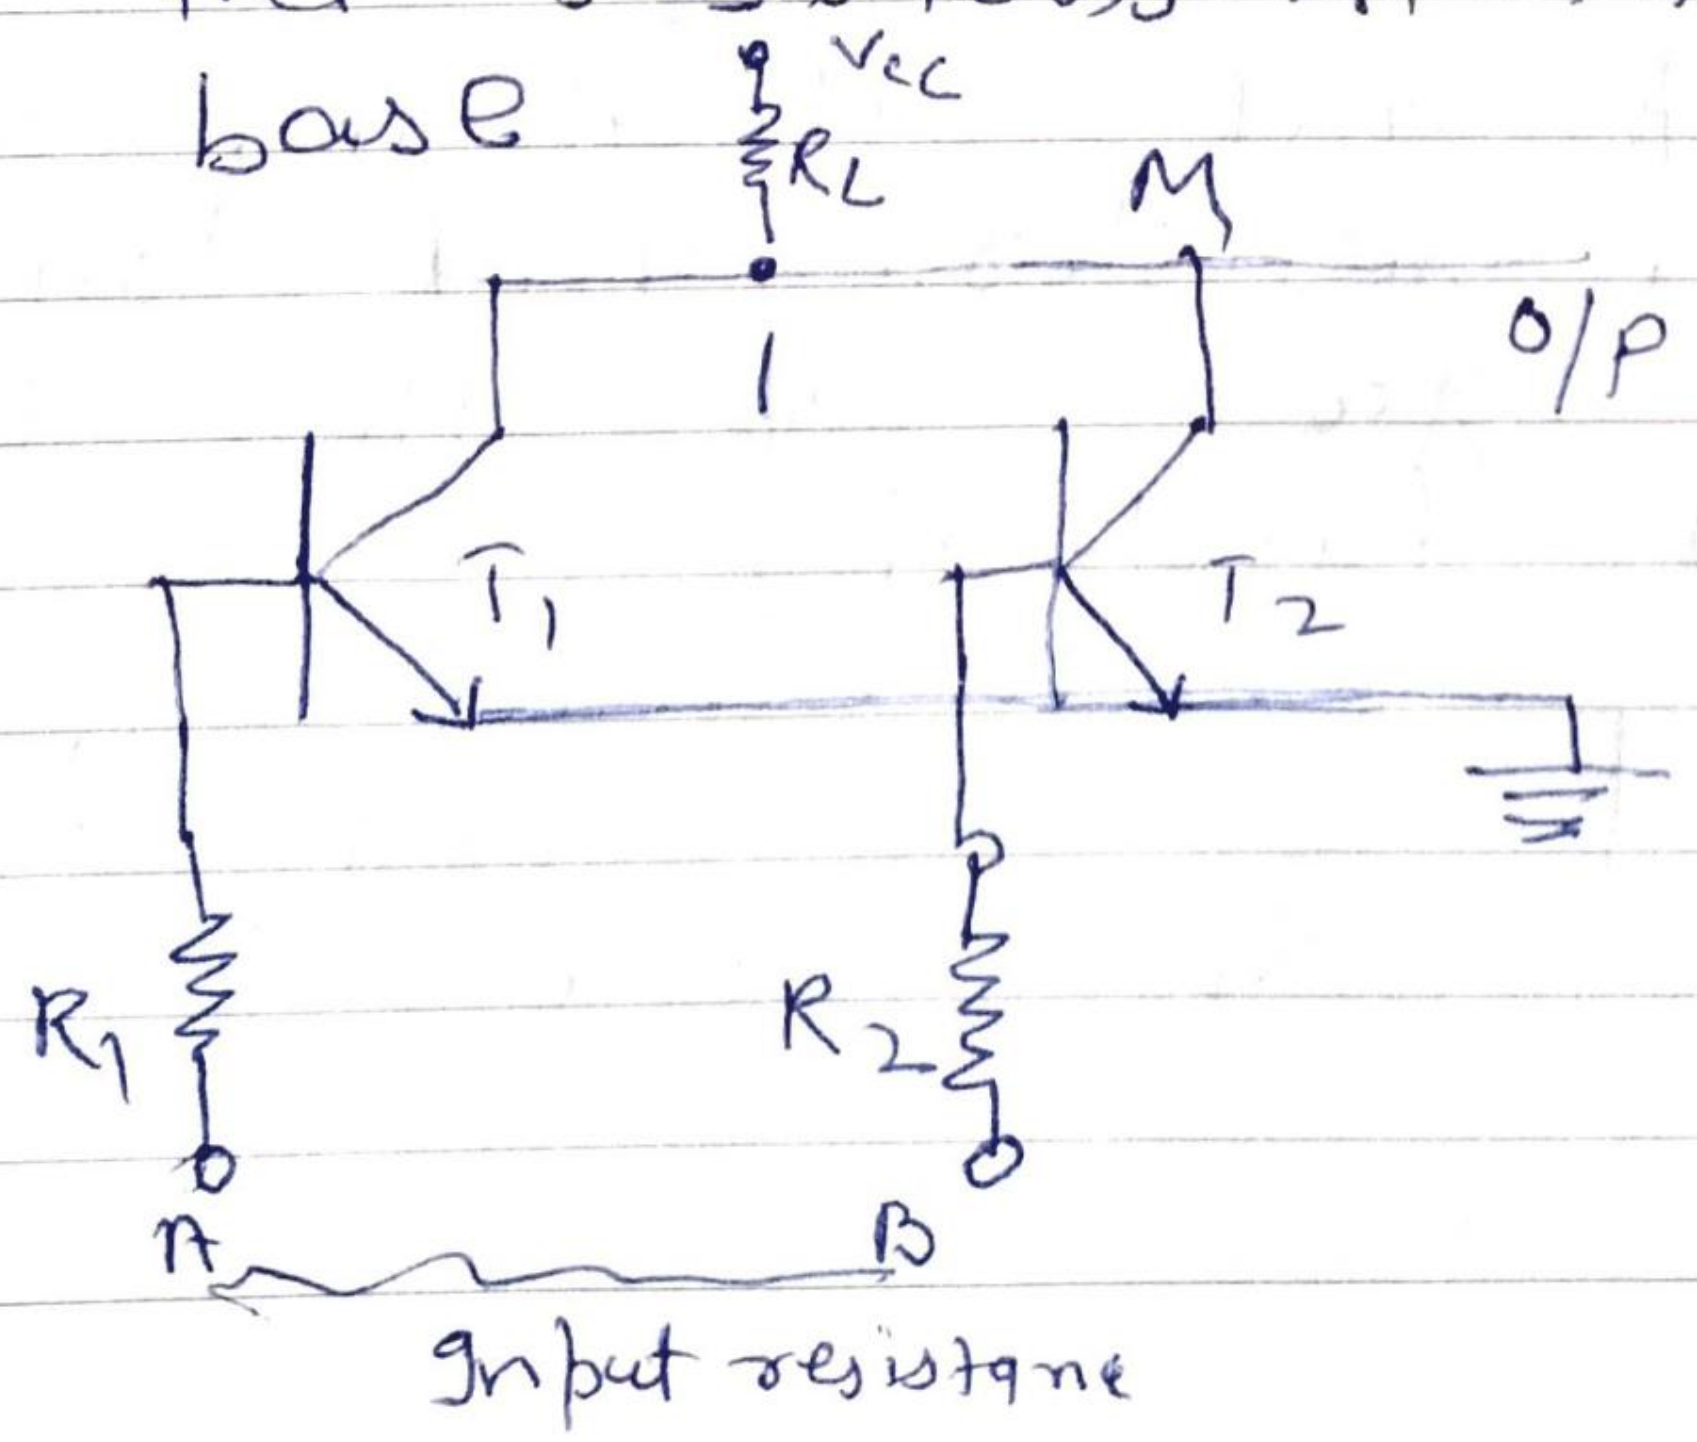 base
Vcc
RL
M
O/P
T1
T2
R1
R2
A
B
Input resistanc